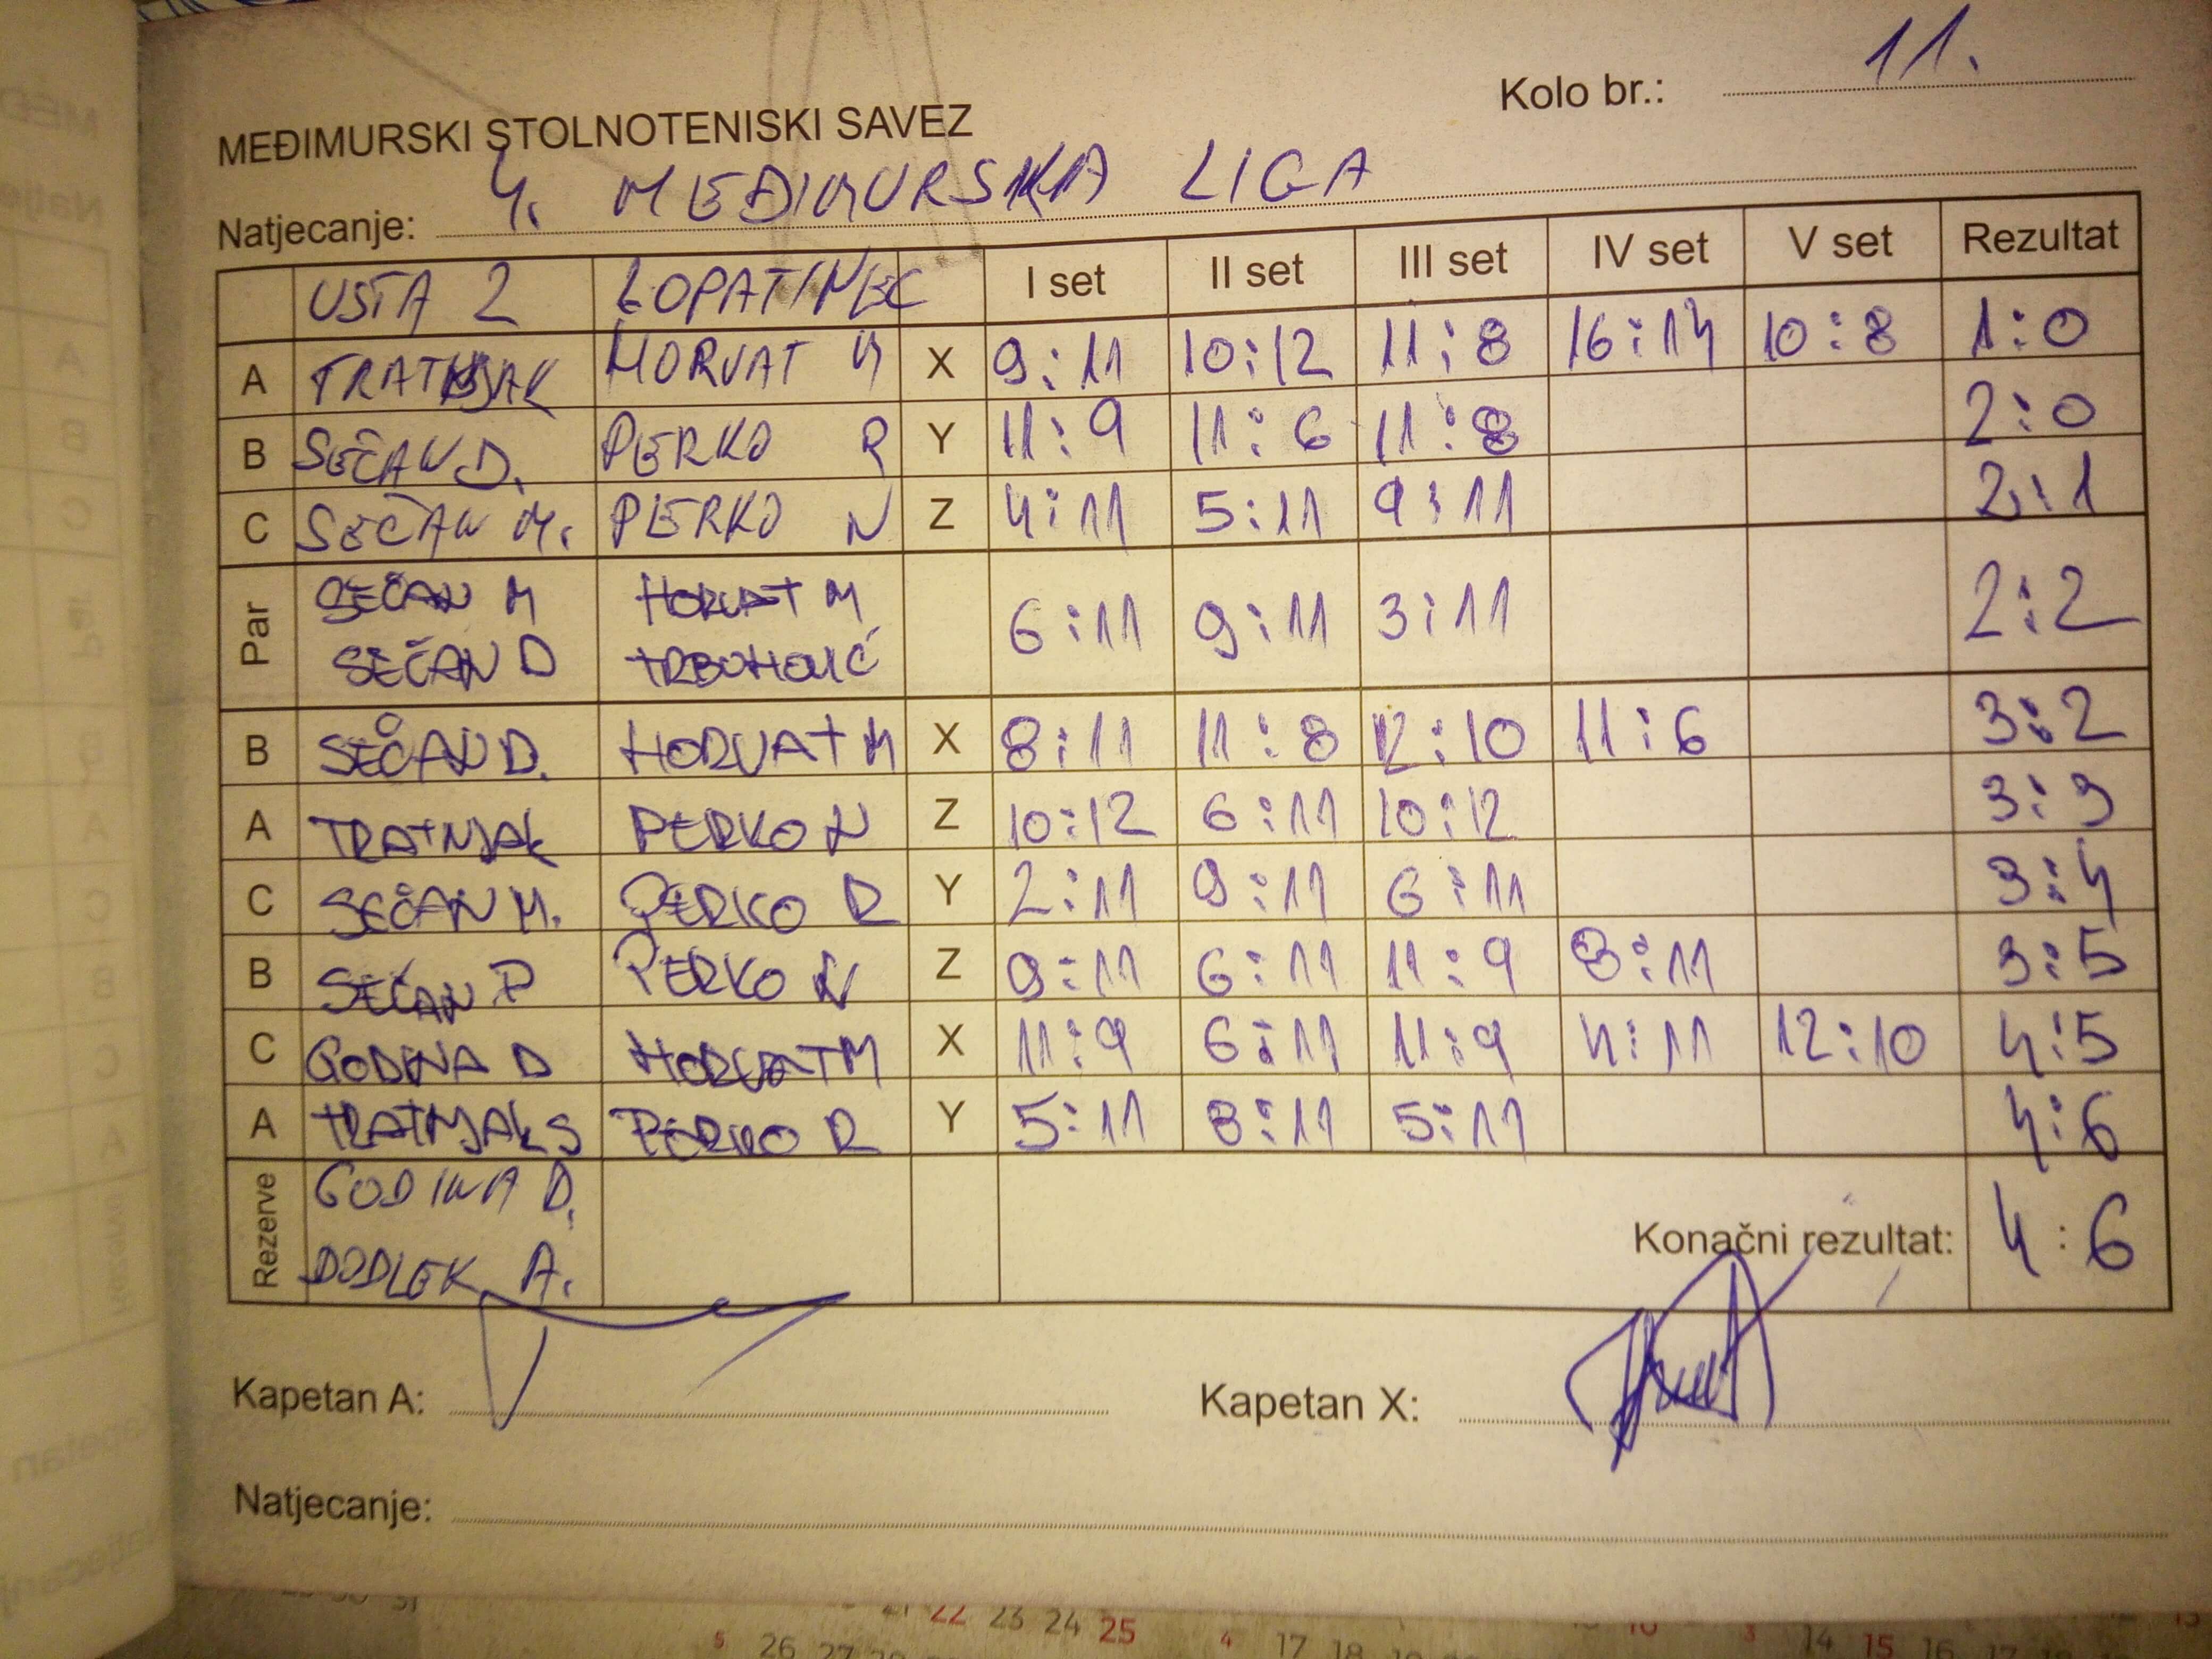 Kolo br.: 11.
MEĐIMURSKI STOLNOTENISKI SAVEZ
Natjecanje: 4. MEĐIMURSKA LIGA
USTA 2 LOPATINEC I set II set III set IV set V set Rezultat
A TRATNJAK HORVAT M X 9:11 10:12 11:8 16:14 10:8 1:0
B SEČAN D. PERKO R Y 11:9 11:6 11:8 2:0
C SEČAN M. PERKO N Z 4:11 5:11 9:11 2:1
Par SEČAN M HORVAT M 6:11 9:11 3:11 2:2
SEČAN D
B SEČAN D. HORVAT M X 8:11 11:8 12:10 11:6 3:2
A TRATNJAK PERKO N Z 10:12 6:11 10:12 3:3
C SEČAN M. PERKO R Y 2:11 9:11 6:11 3:4
B SEČAN D PERKO N Z 9:11 6:11 11:9 8:11 3:5
C GODINA D HORVAT M X 11:9 6:11 11:9 4:11 12:10 4:5
A TRATNJAK S PERKO R Y 5:11 8:11 5:11 4:6
Rezerve GODINA D.
DODLEK A. Konačni rezultat: 4:6
Kapetan A: Kapetan X:
Natjecanje:
21 22 23 24 25
5 26 27 4 17 18 3 14 15 16 17